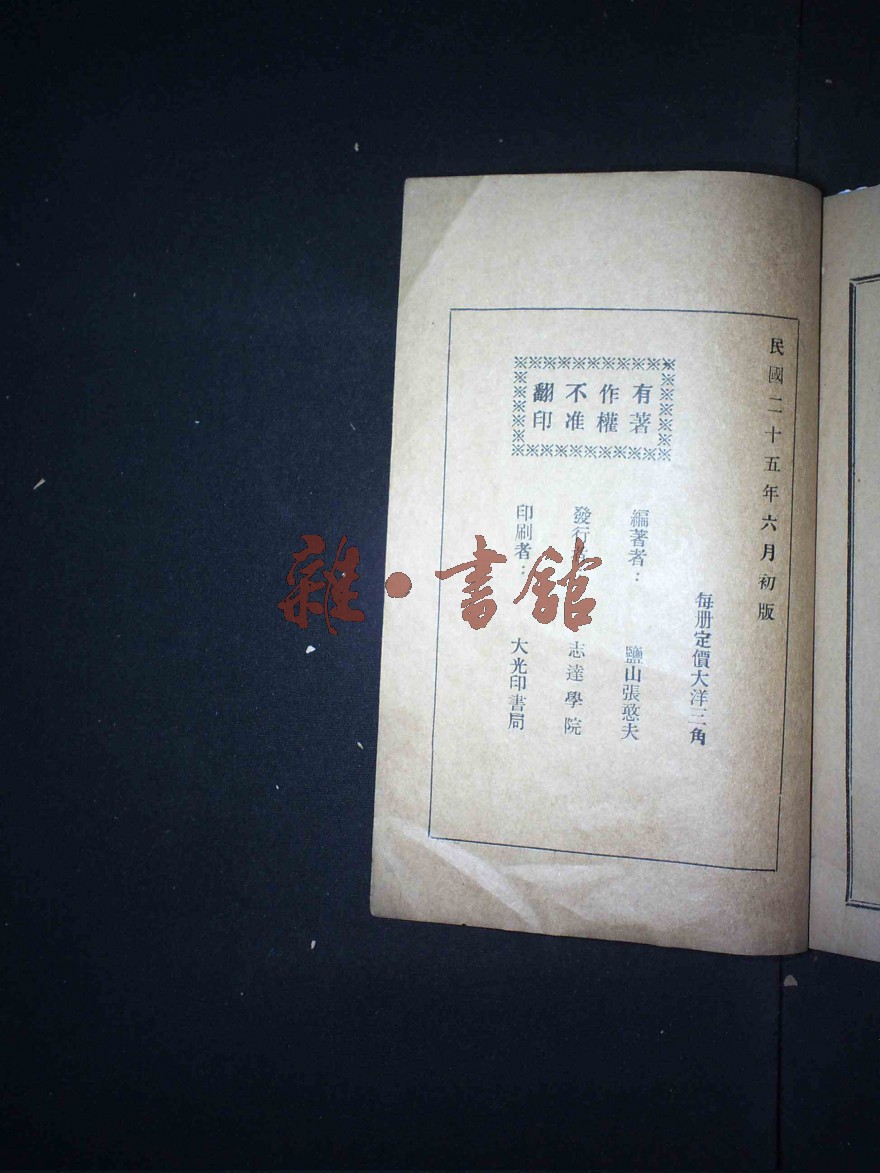 民國二十五年六月初版
每册定價大洋三角
有著
作權
不准
翻印
編著者： 鹽山張憨夫
發行 志達學院
印刷者： 大光印書局
雜·書館